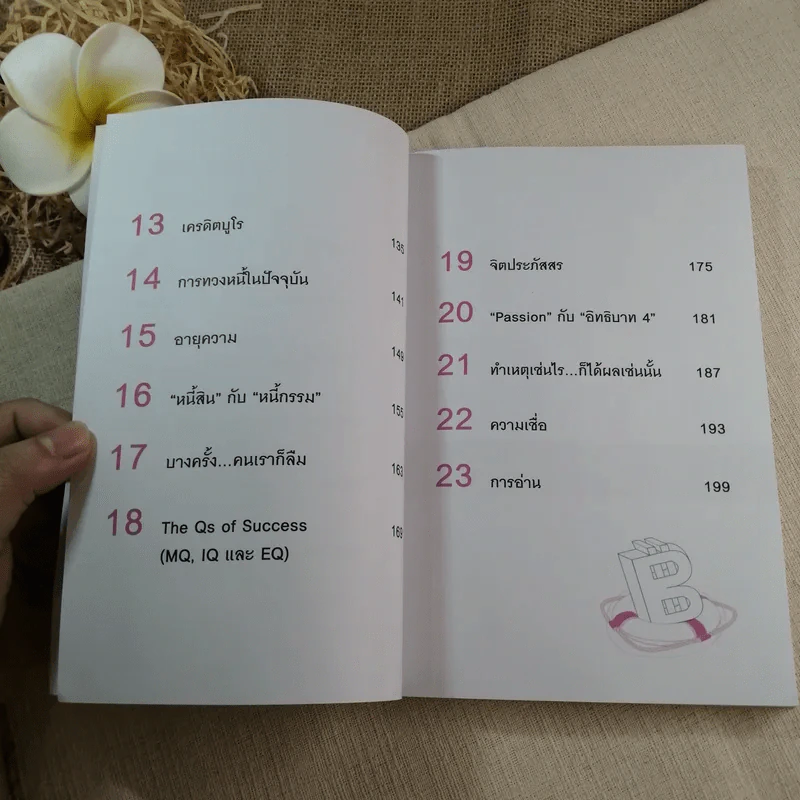 13 เครดิตบูโร 135
14 การทวงหนี้ในปัจจุบัน 141
15 อายุความ 149
16 “หนี้สิน” กับ “หนี้กรรม” 155
17 บางครั้ง...คนเราก็ลืม 163
18 The Qs of Success 169
(MQ, IQ และ EQ)
19 จิตประภัสสร 175
20 “Passion” กับ “อิทธิบาท 4” 181
21 ทำเหตุเช่นไร...ก็ได้ผลเช่นนั้น 187
22 ความเชื่อ 193
23 การอ่าน 199